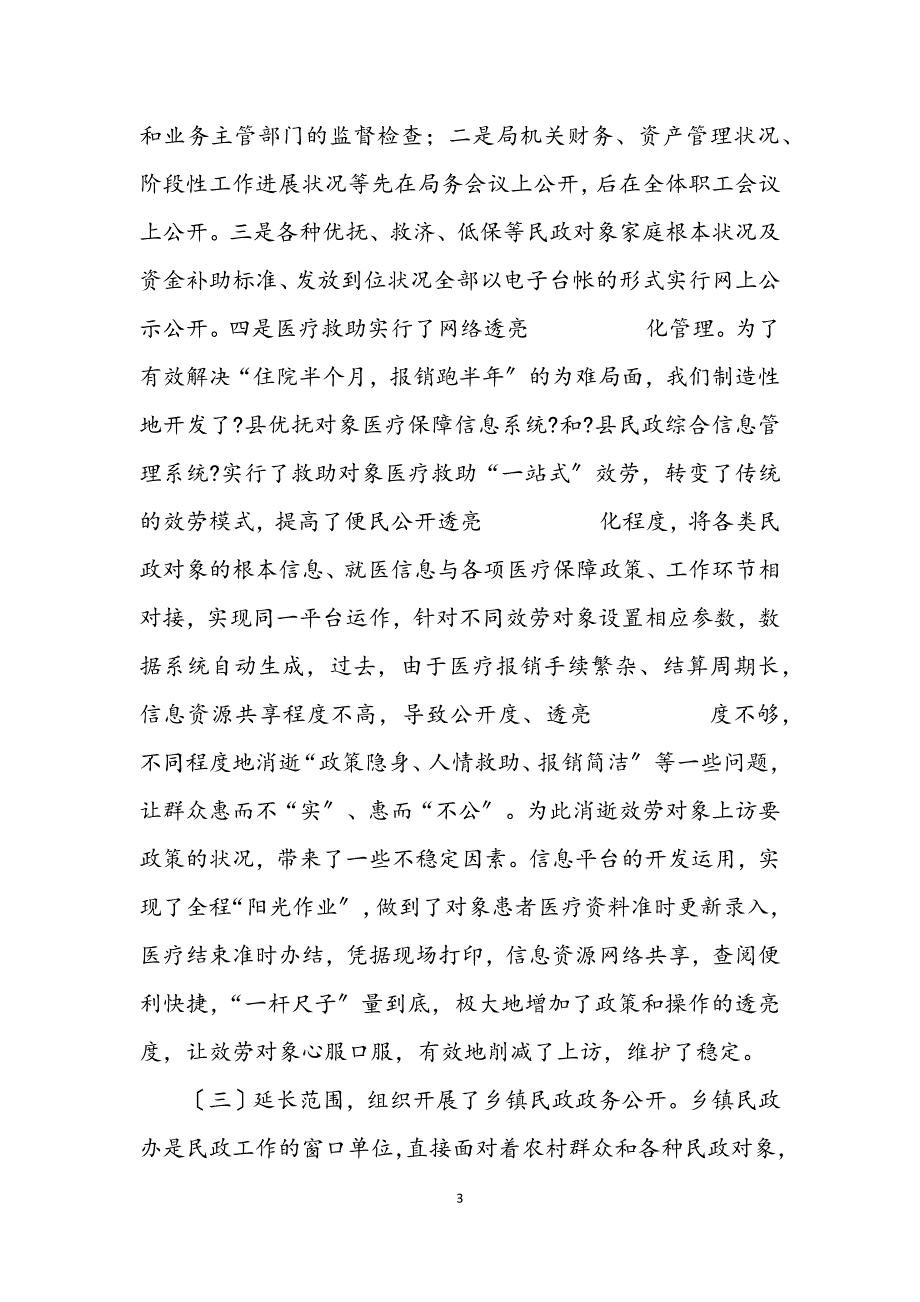 和业务主管部门的监督检查；二是局机关财务、资产管理状况、
阶段性工作进展状况等先在局务会议上公开，后在全体职工会议
上公开。三是各种优抚、救济、低保等民政对象家庭根本状况及
资金补助标准、发放到位状况全部以电子台帐的形式实行网上公
示公开。四是医疗救助实行了网络透亮　　　　　化管理。为了
有效解决“住院半个月，报销跑半年〞的为难局面，我们制造性
地开发了?县优抚对象医疗保障信息系统?和?县民政综合信息管
理系统?实行了救助对象医疗救助“一站式〞效劳，转变了传统
的效劳模式，提高了便民公开透亮　　　　　化程度，将各类民
政对象的根本信息、就医信息与各项医疗保障政策、工作环节相
对接，实现同一平台运作，针对不同效劳对象设置相应参数，数
据系统自动生成，过去，由于医疗报销手续繁杂、结算周期长，
信息资源共享程度不高，导致公开度、透亮　　　　　度不够，
不同程度地消逝“政策隐身、人情救助、报销简洁〞等一些问题，
让群众惠而不“实〞、惠而“不公〞。为此消逝效劳对象上访要
政策的状况，带来了一些不稳定因素。信息平台的开发运用，实
现了全程“阳光作业〞,做到了对象患者医疗资料准时更新录入，
医疗结束准时办结，凭据现场打印，信息资源网络共享，查阅便
利快捷，“一杆尺子〞量到底，极大地增加了政策和操作的透亮
度，让效劳对象心服口服，有效地削减了上访，维护了稳定。
〔三〕延长范围，组织开展了乡镇民政政务公开。乡镇民政
办是民政工作的窗口单位,直接面对着农村群众和各种民政对象，
3